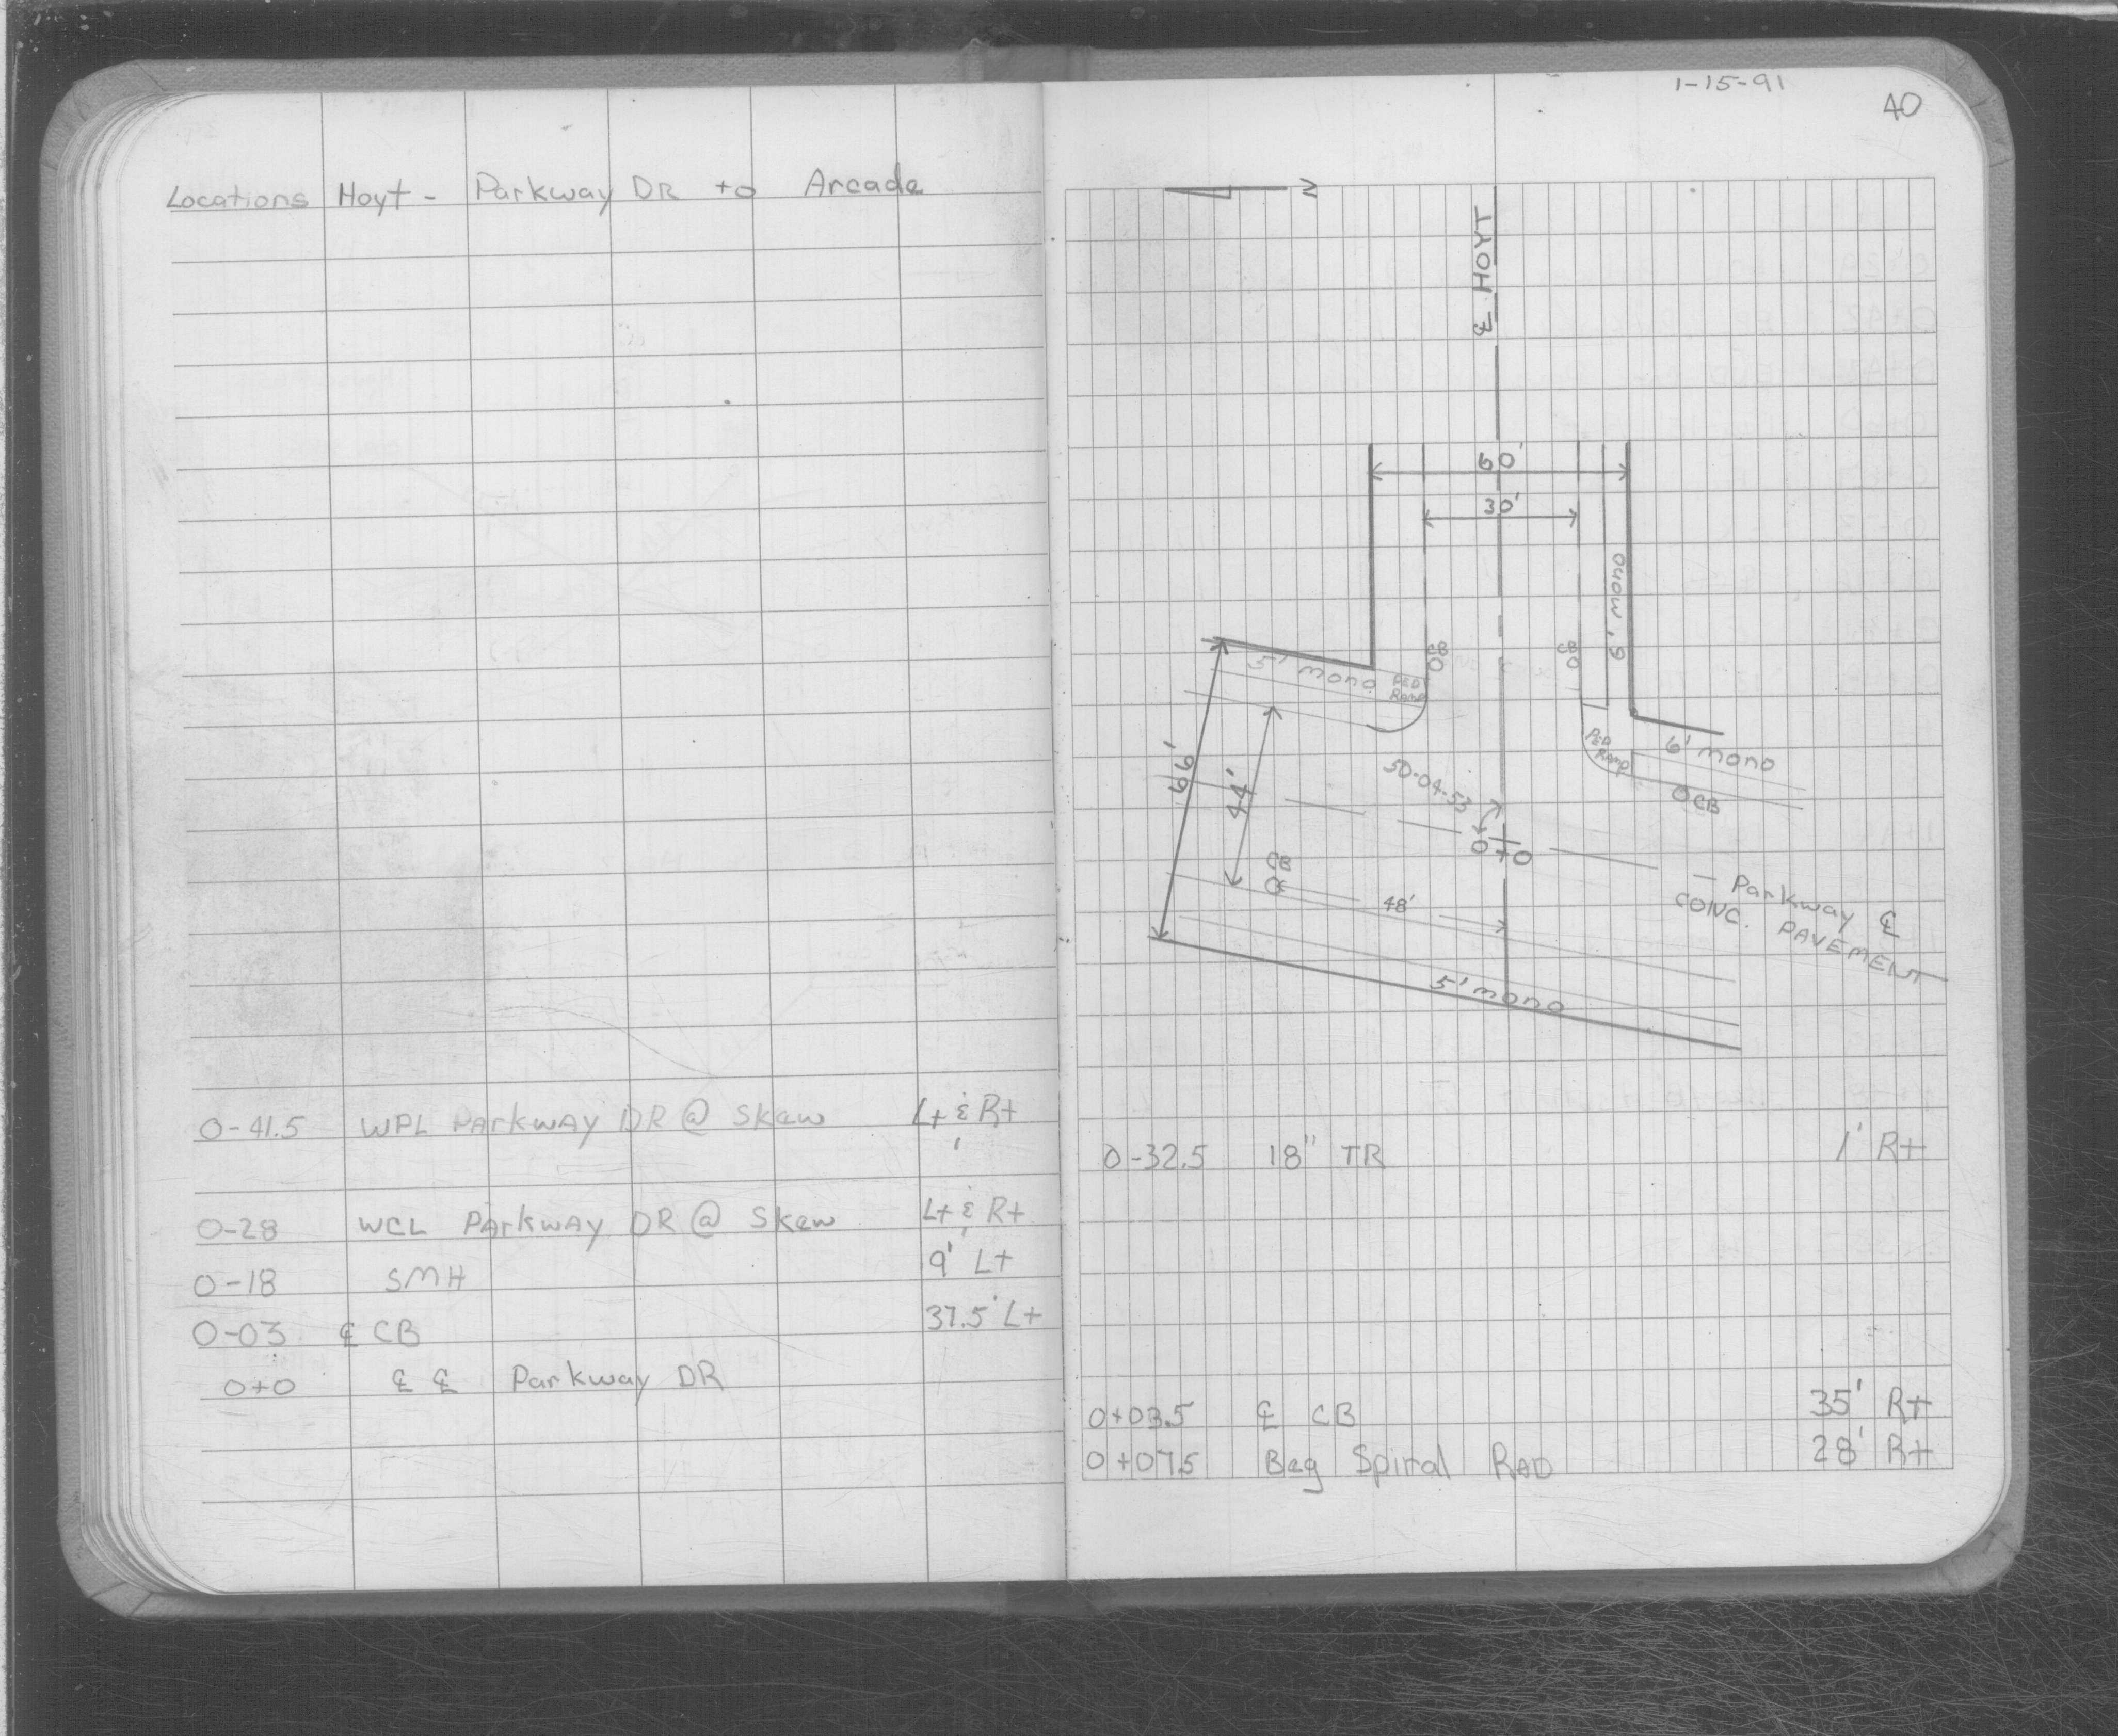 Locations Hoyt - Parkway DR to Arcade
0-41.5 WPL Parkway DR @ Skew Lt & Rt
0-28 WCL Parkway DR @ Skew Lt & Rt
0-18 SMH 9' Lt
0-03 ℄ CB 37.5' Lt
0+0 ℄ ℄ Parkway DR
1-15-91
40
N
℄ HOYT
60'
30'
6' mono
CB
CB
5' mono
PED RAMP
PED RAMP
6' mono
CB
66'
44'
50-04-53
0+0
CB
48'
Parkway ℄
CONC. PAVEMENT
5' mono
0-32.5 18" TR 1' Rt
0+03.5 ℄ CB 35' Rt
0+07.5 Beg Spiral RAD 28' Rt